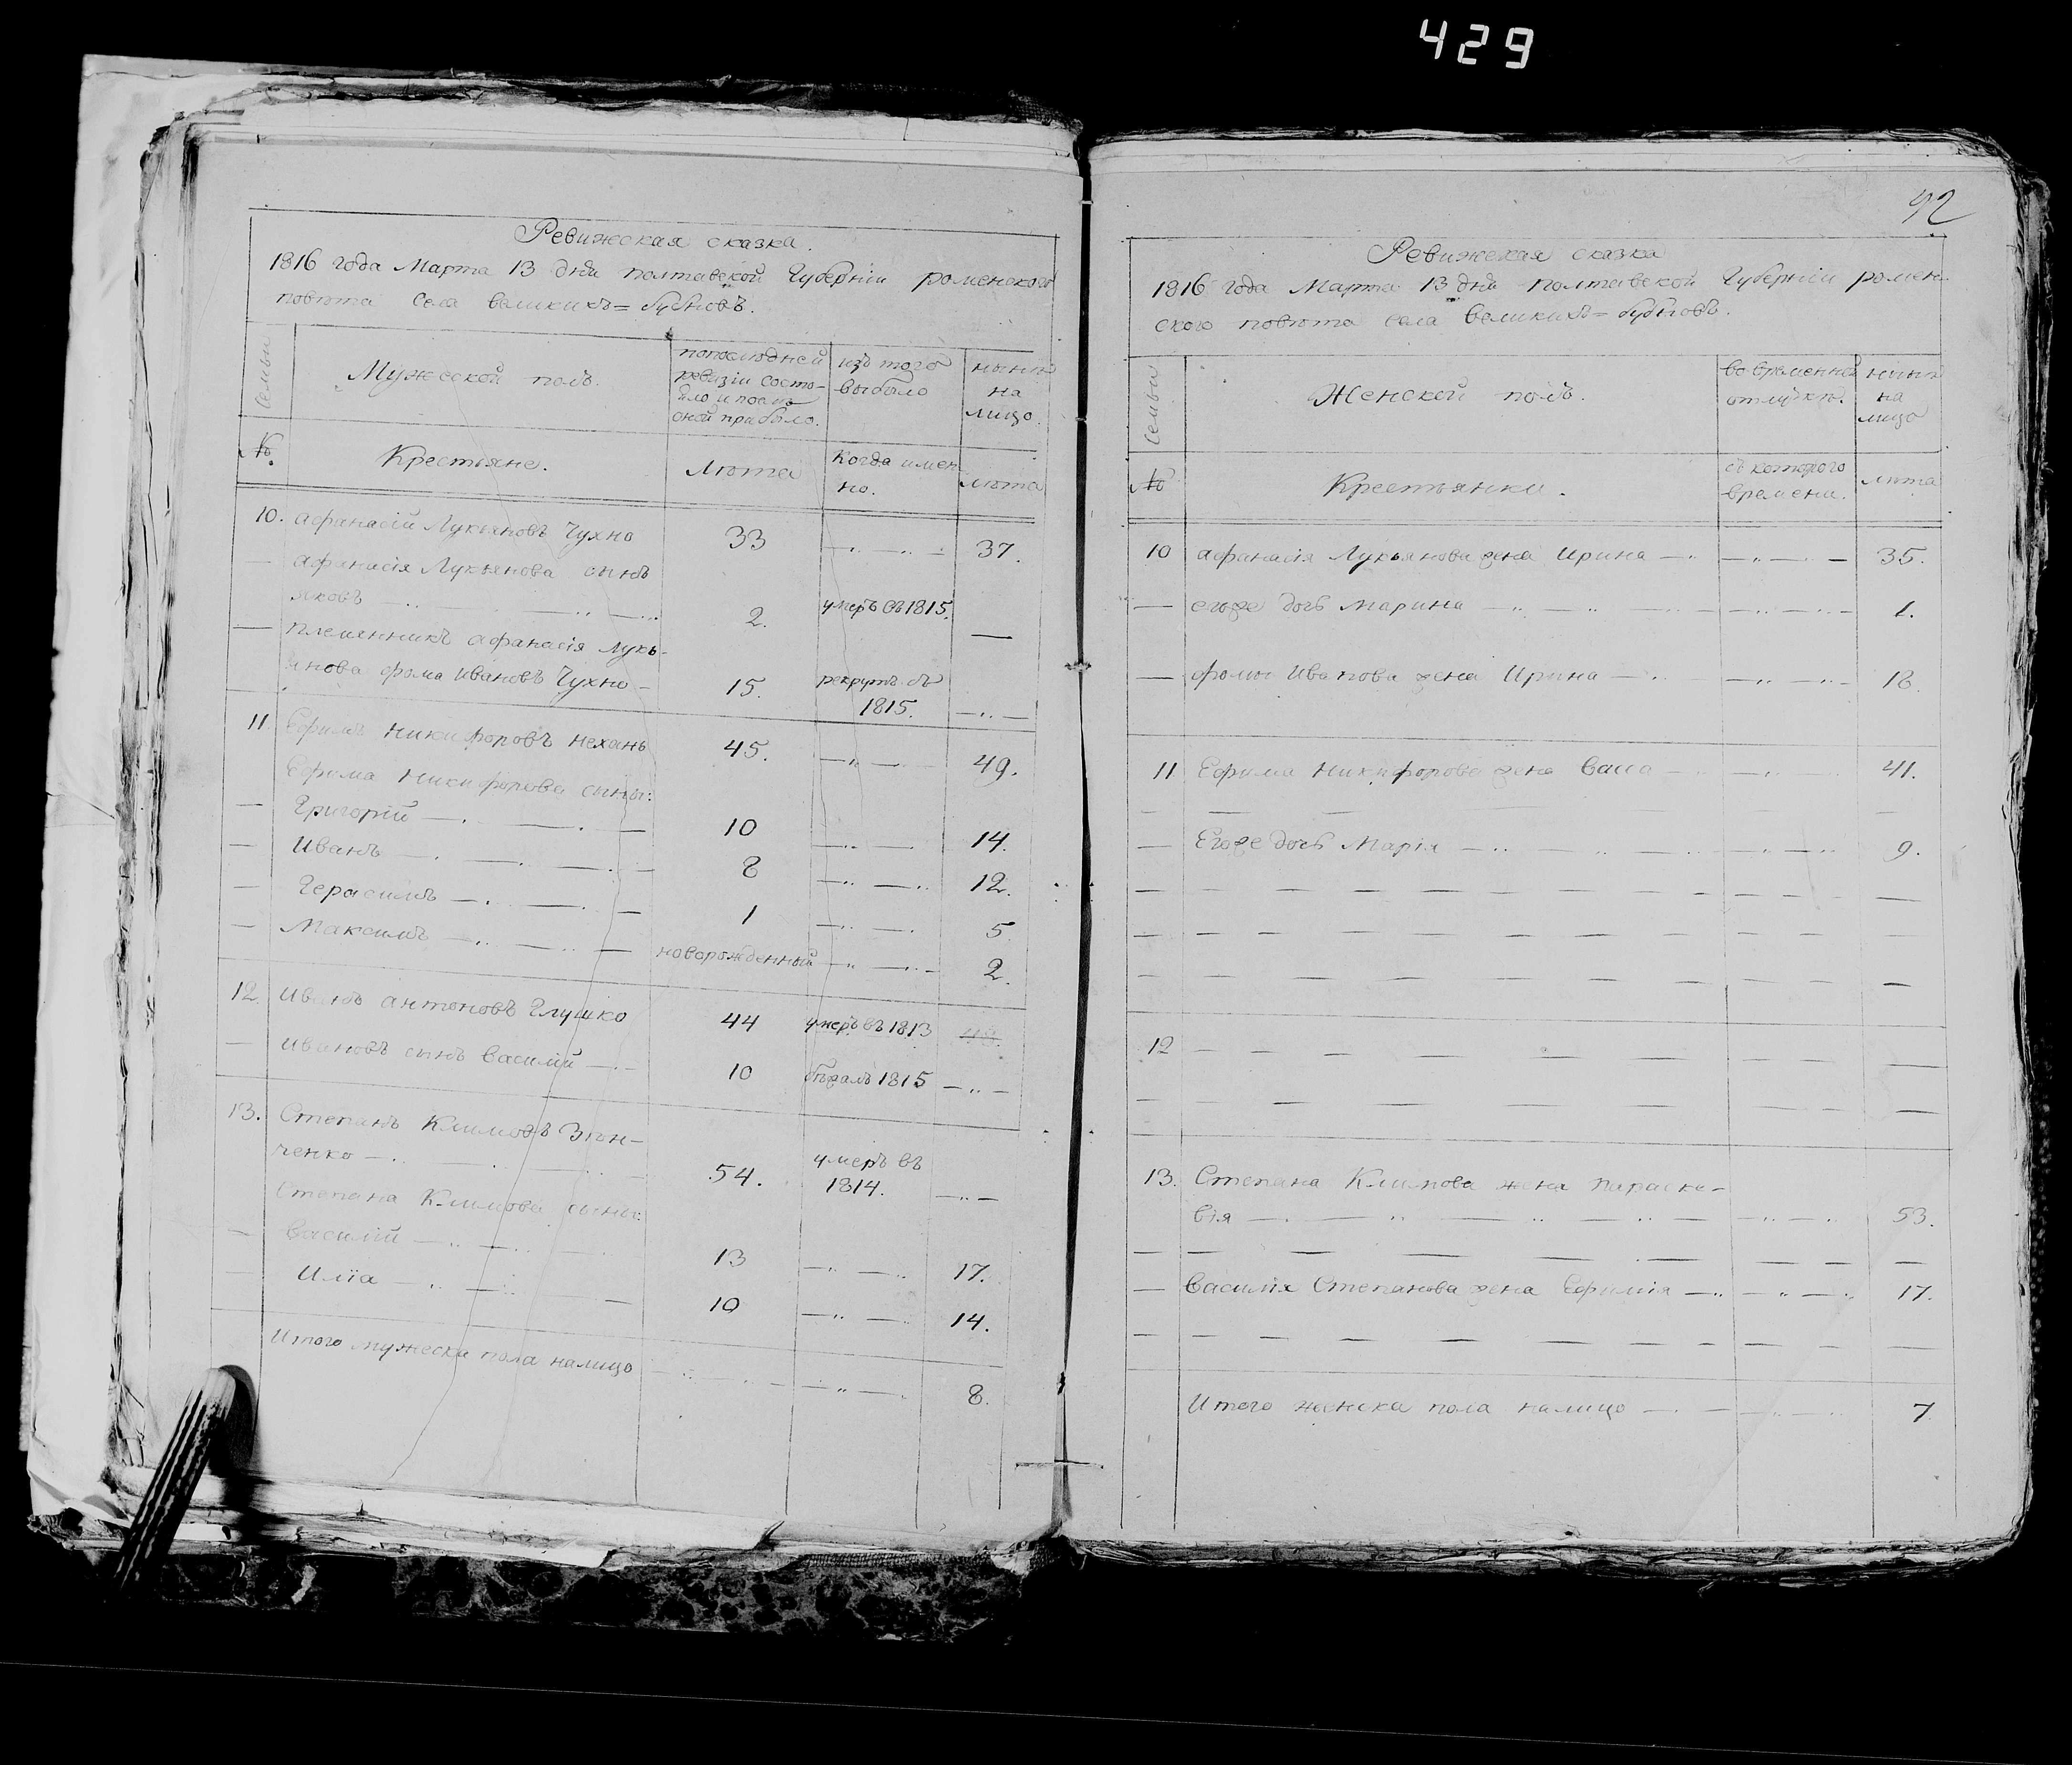 429
Ревижская сказка.
1816 года Марта 13 дня полтавской Губерніи роменского
повѣта Села великихъ=бубновъ.
Семьи
Мужеской полъ.
попослѣдней
ревизіи состо-
яло и послѣ
оной прибыло.
изъ того
выбыло
нынѣ
на
лицо.
№.
Крестьяне.
Лѣта
Когда имен
но.
лѣта
10. афанасій Лукьяновъ Чухно 33 37.
афанасія Лукьянова сынъ
яковъ 2. умеръ въ 1815.
племянникъ афанасія Лукь-
янова фома ивановъ Чухно- 15. рекрутъ въ
1815.
11. Ефимъ никифоровъ нехань 45. 49.
Ефима никифорова сыны:
Григорій 10 14.
Иванъ 8 12.
Герасимъ 1 5.
Максимъ новорожденный 2.
12. иванъ антоновъ Глушко 44 умеръ въ 1813 48.
ивановъ сынъ василій 10 бѣжалъ 1815
13. Степанъ Климовъ Зѣн-
ченко 54. умеръ въ
1814.
Степана Климова сыны:
василій 13 17.
Илїа 10 14.
Итого мужеска пола налицо 8.
92
Ревижская сказка
1816 года Марта 13 дня полтавской Губерніи ромен-
ского повѣта села великихъ=бубновъ.
Семьи
Женской полъ.
во временной
отлучкѣ.
нынѣ
на
лицо
№
Крестьянки.
съ которого
времени.
лѣта
10 афанасія Лукьянова жена Ирина 35.
егоже дочь Марина 1.
фомы Иванова жена Ирина 18.
11 Ефима Никифорова жена васса 41.
Егоже дочь Марія 9.
12
13. Степана Климова жена параске-
вія 53.
василія Степанова жена Ефимія 17.
Итого женска пола налицо 7